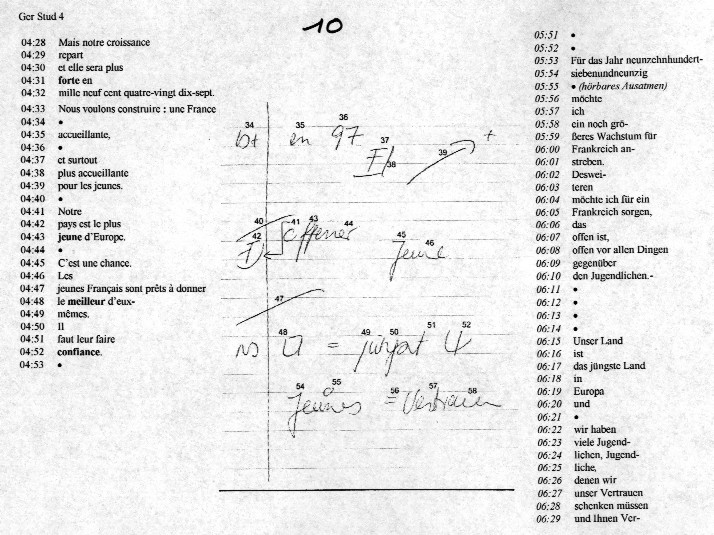 Ger Stud 4
10
04:28 Mais notre croissance
04:29 repart
04:30 et elle sera plus
04:31 forte en
04:32 mille neuf cent quatre-vingt dix-sept.
04:33 Nous voulons construire : une France
04:34 •
04:35 accueillante,
04:36 •
04:37 et surtout
04:38 plus accueillante
04:39 pour les jeunes.
04:40 •
04:41 Notre
04:42 pays est le plus
04:43 jeune d'Europe.
04:44 •
04:45 C'est une chance.
04:46 Les
04:47 jeunes Français sont prêts à donner
04:48 le meilleur d'eux-
04:49 mêmes.
04:50 Il
04:51 faut leur faire
04:52 confiance.
04:53 •
34 35 36
en 97
37 38 39
F +
40 41 43 44
42 offener
45 46
Jeune
47
48 49 50 51 52
=
54 55 56 57 58
Jeunes = Vertrauen
05:51 •
05:52 •
05:53 Für das Jahr neunzehnhundert-
05:54 siebenundneunzig
05:55 • (hörbares Ausatmen)
05:56 möchte
05:57 ich
05:58 ein noch grö-
05:59 ßeres Wachstum für
06:00 Frankreich an-
06:01 streben.
06:02 Deswei-
06:03 teren
06:04 möchte ich für ein
06:05 Frankreich sorgen,
06:06 das
06:07 offen ist,
06:08 offen vor allen Dingen
06:09 gegenüber
06:10 den Jugendlichen.-
06:11 •
06:12 •
06:13 •
06:14 •
06:15 Unser Land
06:16 ist
06:17 das jüngste Land
06:18 in
06:19 Europa
06:20 und
06:21 •
06:22 wir haben
06:23 viele Jugend-
06:24 lichen, Jugend-
06:25 liche,
06:26 denen wir
06:27 unser Vertrauen
06:28 schenken müssen
06:29 und Ihnen Ver-